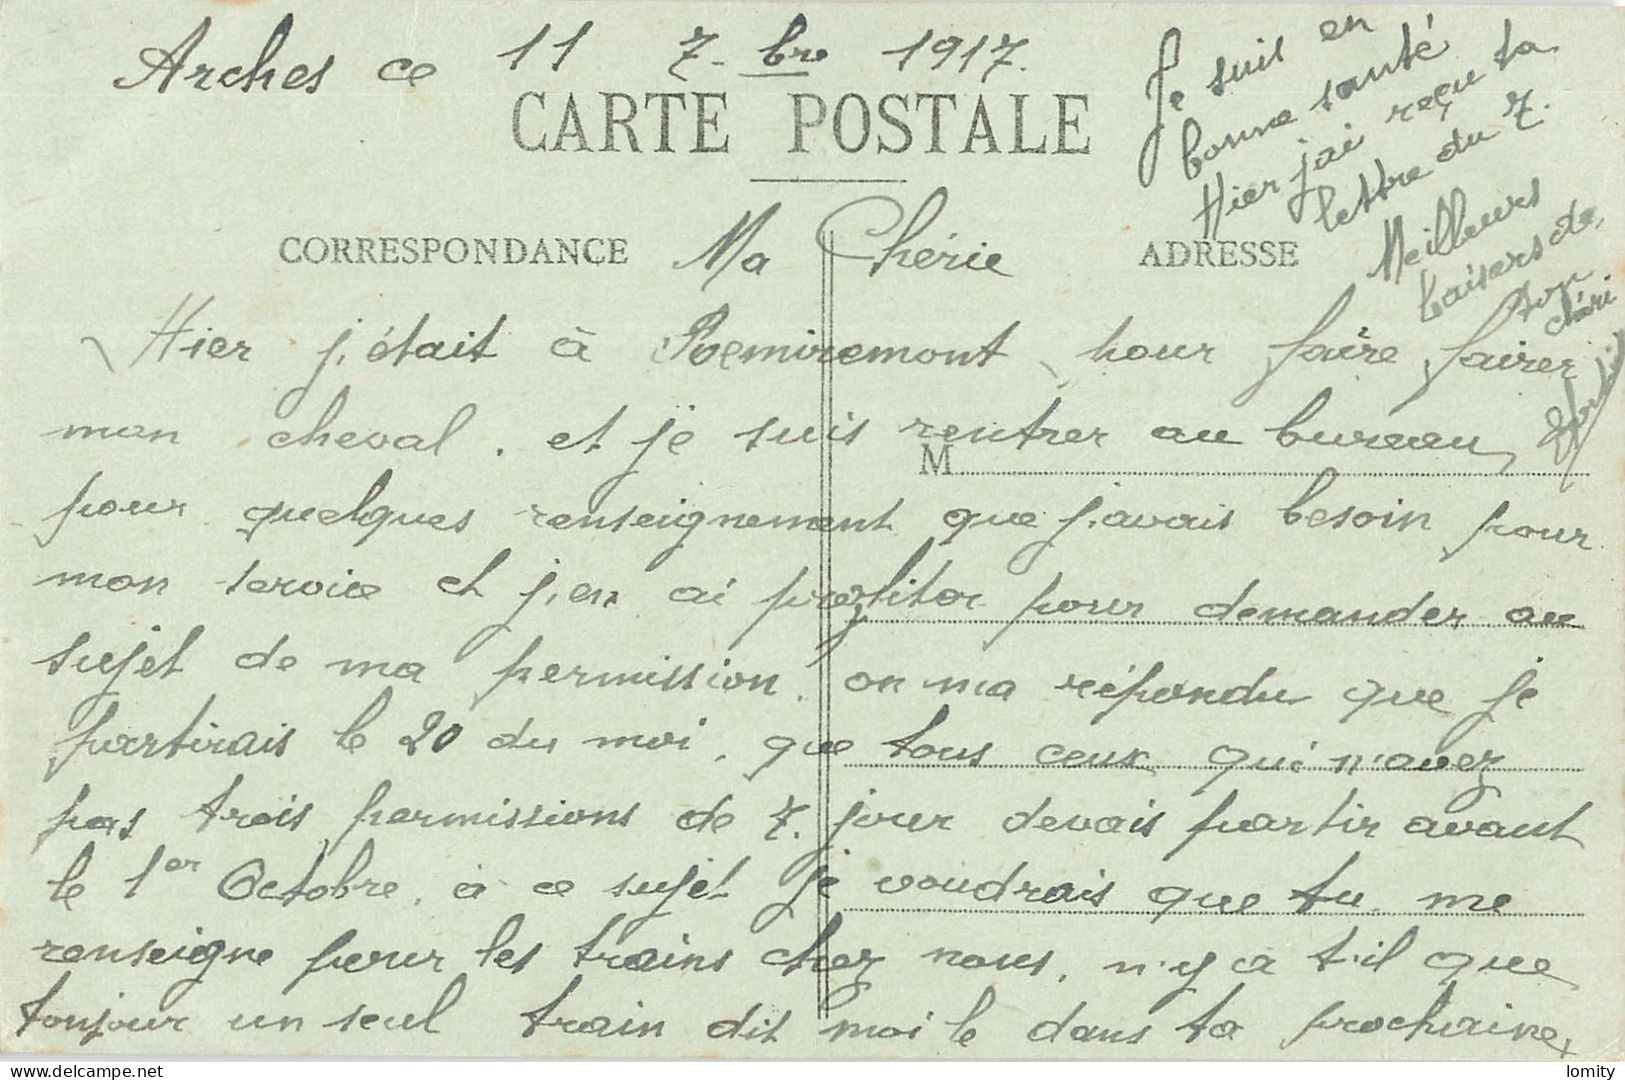 Arches ce 11 7.bre 1917.
CARTE POSTALE
CORRESPONDANCE
ADRESSE
Ma Chérie
Hier j'était à Remiremont pour faire fairer
mon cheval. et je suis rentrer au bureau
M
pour quelques renseignement que j'avais besoin pour
mon service et j'en ai profiter pour demander au
sujet de ma permission. on ma répondu que je
partirais le 20 du moi. que tous ceux qui n'avez
pas trois permissions de 7. jour devais partir avant
le 1er Octobre. à ce sujet je voudrais que tu me
renseigne pour les trains chez nous, n'y a t'il que
toujour un seul train dit moi le dans ta prochaine
Je suis en
bonne santé
Hier j'ai reçu ta
lettre du 7.
Meilleurs
baisers de
ton
chéri
Visit all my auctions
lomity